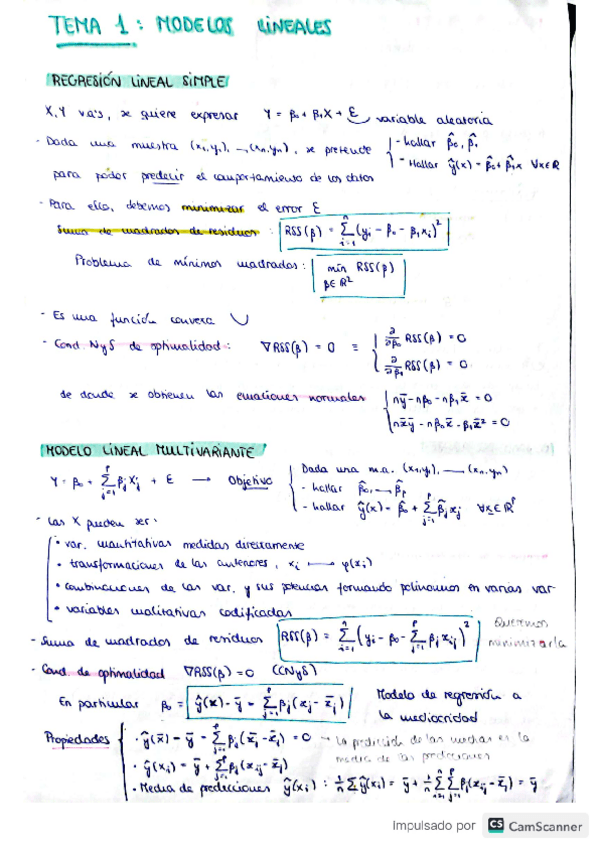 TEMA 1: MODELOS LINEALES
REGRESIÓN LINEAL SIMPLE
X, Y va's, se quiere expresar Y = β₀ + β₁X + ε variable aleatoria
- Dada una muestra (x₁,y₁), ..., (xₙ,yₙ), se pretende { - hallar β̂₀, β̂₁
- Hallar ŷ(x) = β̂₀ + β̂₁x ∀x∈ℝ
para poder predecir el comportamiento de los datos
- Para ello, debemos minimizar el error ε
Suma de cuadrados de residuos: RSS(β) = Σᵢ₌₁ⁿ (yᵢ - β₀ - β₁xᵢ)²
Problema de mínimos cuadrados: min RSS(β)
β∈ℝ²
- Es una función convexa ∪
- Cond. NyS de optimalidad: ∇RSS(β) = 0 ≡ { ∂/∂β₀ RSS(β) = 0
∂/∂β₁ RSS(β) = 0
de donde se obtienen las ecuaciones normales { nȳ - nβ₀ - nβ₁x̄ = 0
nx̄ȳ - nβ₀x̄ - β₁x̄² = 0
MODELO LINEAL MULTIVARIANTE
Y = β₀ + Σⱼ₌₁ᵖ βⱼXⱼ + ε → Objetivo { Dada una m.a. (x₁,y₁), ..., (xₙ,yₙ)
- hallar β̂₀, ..., β̂ₚ
- hallar ŷ(x) = β̂₀ + Σⱼ₌₁ᵖ β̂ⱼxⱼ ∀x∈ℝᵖ
- Las X pueden ser:
• var. cuantitativas medidas directamente
• transformaciones de las anteriores, xᵢ ↦ φ(xᵢ)
• combinaciones de las var. y sus potencias formando polinomios en varias var
• variables cualitativas codificadas
- Suma de cuadrados de residuos RSS(β) = Σᵢ₌₁ⁿ (yᵢ - β₀ - Σⱼ₌₁ᵖ βⱼxᵢⱼ)² Queremos
minimizarla
- Cond. de optimalidad ∇RSS(β) = 0 (CNyS)
En particular β₀ = ŷ(x) - ȳ = Σⱼ₌₁ᵖ βⱼ(xⱼ - x̄ⱼ) Modelo de regresión a
la mediocridad
Propiedades { • ŷ(x̄) - ȳ = Σⱼ₌₁ᵖ βⱼ(x̄ⱼ - x̄ⱼ) = 0 → La predicción de las medias es la
media de las predicciones
• ŷ(xᵢ) = ȳ + Σⱼ₌₁ᵖ βⱼ(xᵢⱼ - x̄ⱼ)
• Media de predicciones ŷ(xᵢ) : 1/n Σ ŷ(xᵢ) = ȳ + 1/n Σᵢ₌₁ⁿ Σⱼ₌₁ᵖ βⱼ(xᵢⱼ - x̄ⱼ) = ȳ
Impulsado por CS CamScanner